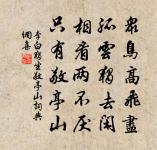 眾鳥高飛盡
孤雲獨去閒
相看兩不厭
只有敬亭山
李白獨坐敬亭山詞典
網集